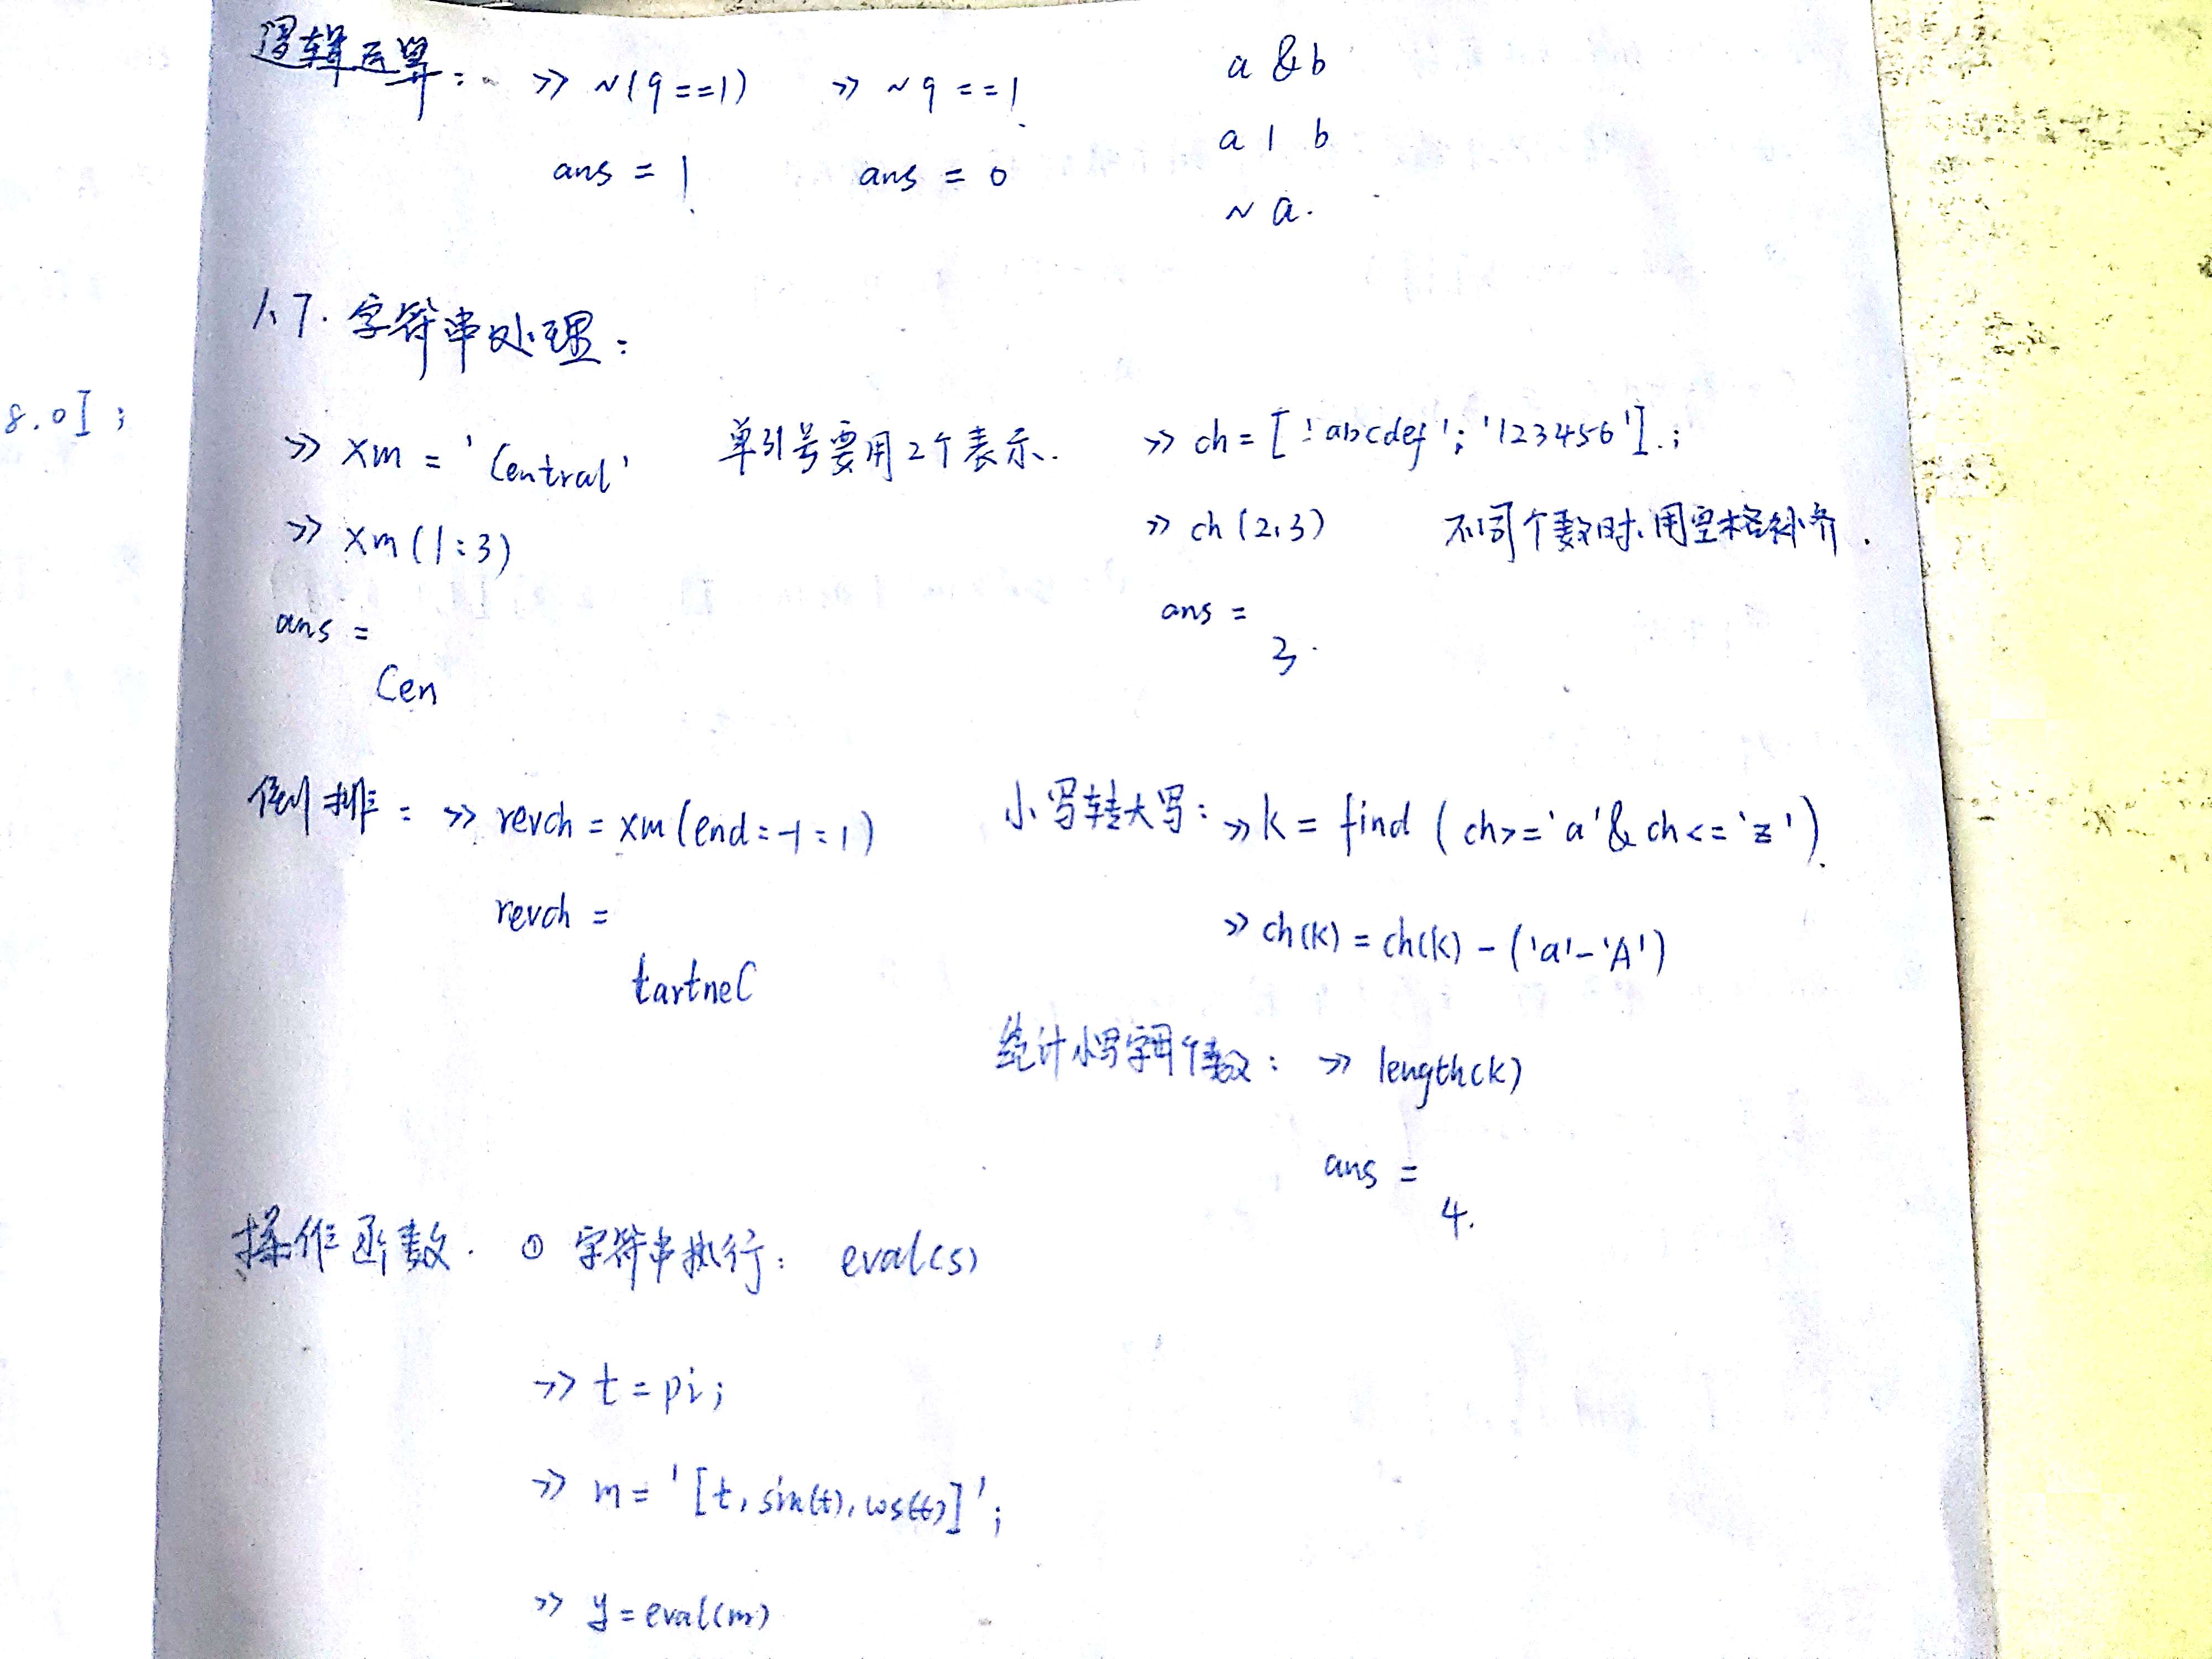 逻辑运算: >> ~(9==1) >> ~9==1 a & b
a | b
ans = 1 ans = 0
~ a.
1.7. 字符串处理:
8.0];
>> xm = 'Central' 单引号要用2个表示. >> ch = ['abcdef'; '123456'].;
>> xm(1:3) >> ch(2,3) 不同个数时,用空格补齐.
ans = ans =
Cen 3.
倒排: >> revch = xm(end:-1:1) 小写转大写: >> k = find (ch>='a' & ch<='z').
revch = >> ch(k) = ch(k) - ('a'-'A')
tartneC
统计小写字母个数: >> length(k)
ans =
4.
操作函数. ① 字符串执行: eval(s)
>> t = pi;
>> m = '[t, sin(t), cos(t)]';
>> y = eval(m)